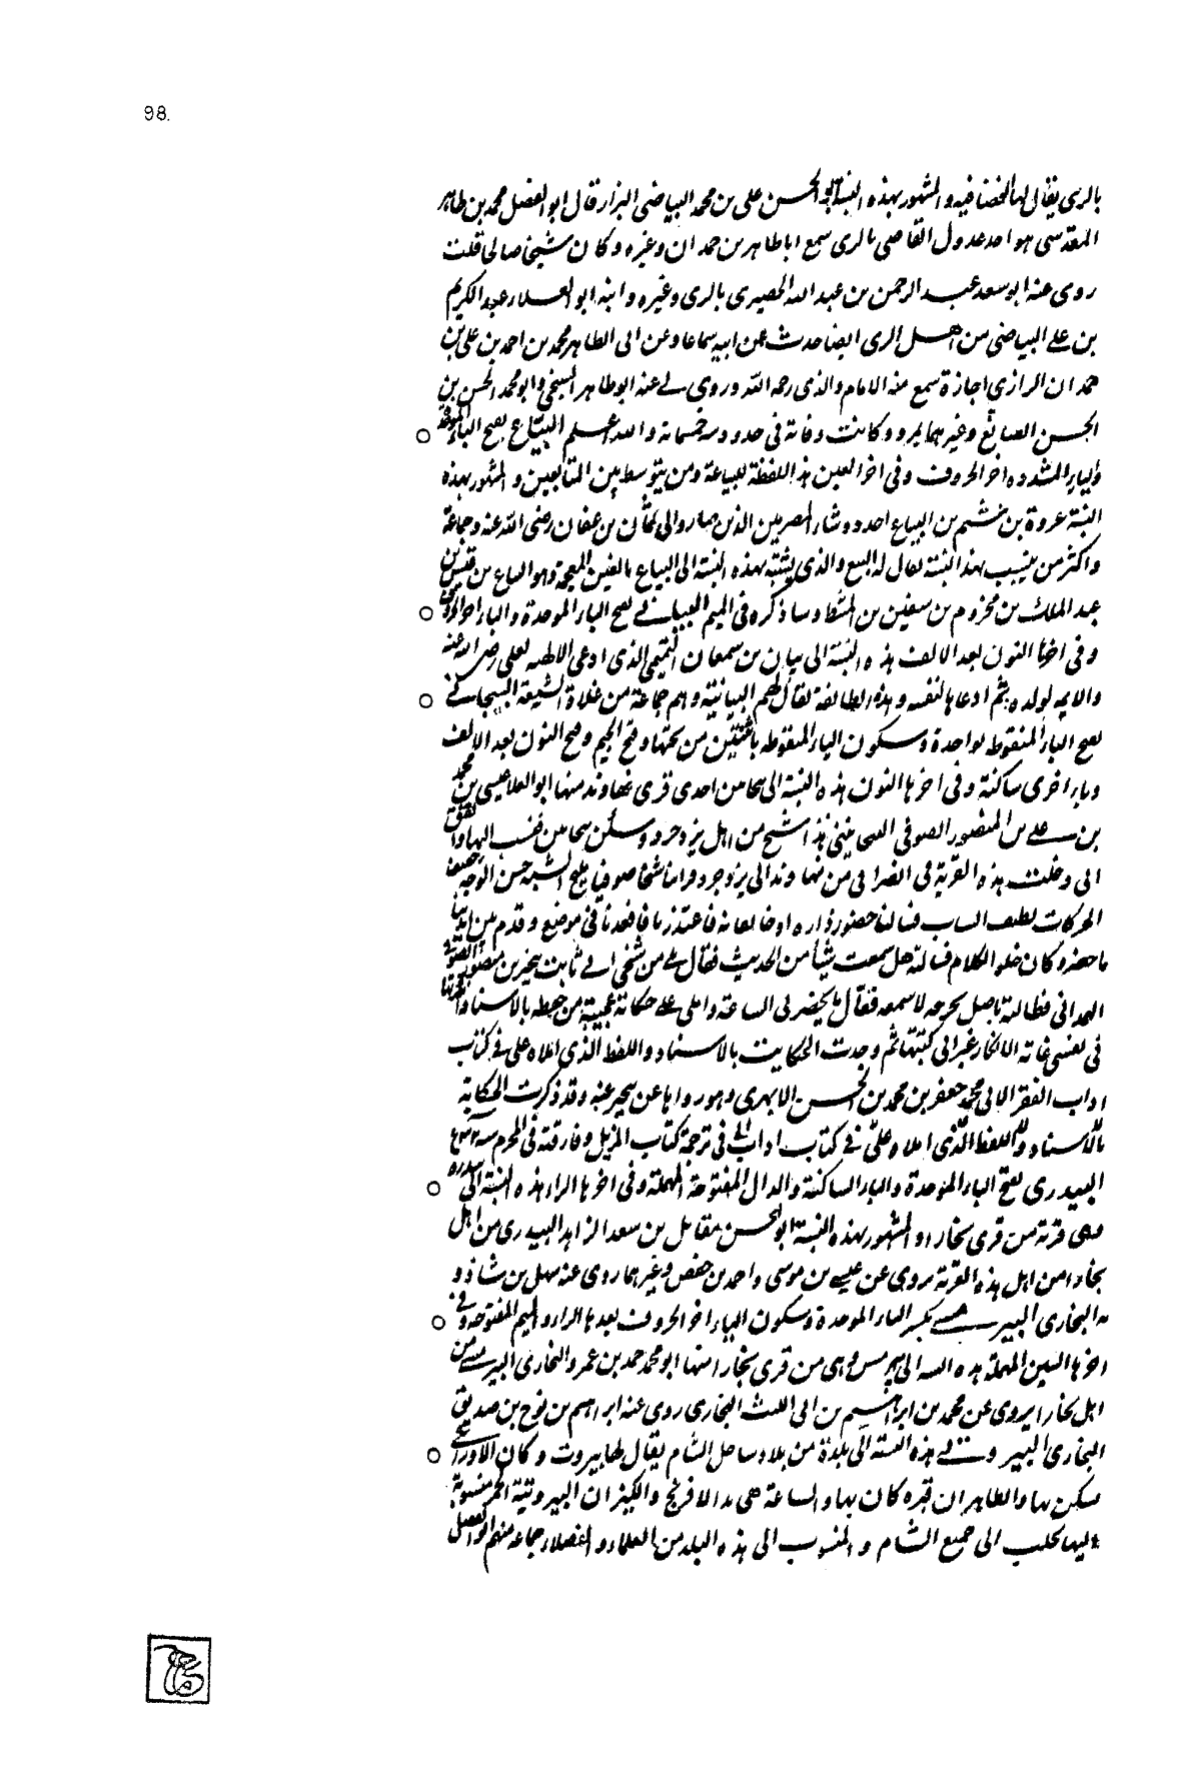 98.
بالرى يقال لها الخضافيه و المشهور بهذه النسبة ابو الحسن على بن محمد البياضى البزار قال ابو الفضل محمد بن طاهر
المقدسى هو احد عدول القاضى بالرى سمع اباطاهر بن حمدان وغيره وكان شيخا صالحا قلت
روى عنه ابو سعد عبد الرحمن بن عبد الله الحصيرى بالرى وغيره وابنه ابو العلاء عبد الكريم
بن على البياضى من اهل الرى ايضا حدث عن ابيه سماعا وعن ابى الطاهر محمد بن احمد بن على بن
حمدان الرازى اجازة سمع منه الامام والدى رحمه الله وروى لى عنه ابو طاهر السنجى وابو محمد الحسن بن
الحسن الصايغ وغيرهما بمرو وكانت وفاته فى حدود سنة خمسماية والله اعلم البياع بفتح الباء الموحدة
والياء المشدده اخر الحروف وفى اخر العين هذه اللفظة للبياعة ومن يتوسط بين المتابعين و المشهور بهذه
النسبة عروة بن شييم بن البياع احد روساء المصريين الذين صاروا الى عثمان بن عفان رضى الله عنه وجماعة
واكثر من ينسب بهذا النسبة يقال له البيع والذى يشتبه بهذه النسبة الى البياغ بالغين المعجمة وهو البياغ بن قيس بن
عبد الملك بن مخزوم بن سفين بن المشظ وساذكره فى الميم البيانى بفتح الباء الموحدة والياء اخر الحروف
وفى اخرها النون بعد الالف هذه النسبة الى بيان بن سمعان التميمى الذى ادعى الالهية لعلى رضى الله عنه
والايمه لولده ثم ادعاها لنفسه وهذه الطائفة يقال لهم البيانية وهم جماعة من غلاة الشيعة البيجانى
بفتح الباء المنقوط بواحدة وسكون الياء المنقوطه باثنتين من تحتها وفتح الجيم وفتح النون بعد الالف
وياء اخرى ساكنة وفى اخرها النون هذه النسبة الى احدى قرى نهاوند منها ابو العلا عيسى بن محمد
بن على بن المنصور الصوفى هذا شيخ من اهل يزدجرد وسكن
الى دخلت هذه القرية فى انصرافى من نهاوند الى يزوجرد فراينا شيخا صوفيا مليح الشيبة حسن الوجه خفيف
الحركات نظيف الثياب فسالنا حضور داره اوخانقاه فاعتذرنا فاقعدنا فى موضع وقدم من
ماحضره كان حلو الكلام فسالته هل سمعت شيئا من الحديث فقال من شيخى ابى ثابت بنجير بن منصور الصوفى
الهمدانى فطالبته باصل يخرجه لاسمعه فقال ما يحضرنى الساعة واملى على حكاية عجيبة من حفظه بالاسناد
فى نفسى غاية الانكار غير انى كتبتها ثم وجدت الحكايت بالاسناد واللفظ الذى املاه على فى كتاب
اداب الفقراء لابى محمد جعفر بن محمد بن الحسن الابهرى وهو رواها عن بنجير عنه وقد ذكرت الحكاية
بالاسناد واللفظ الذى املاه على فى كتاب اداب فى ترجمة كتاب المزيل وفارقته فى المحرم سنة
البيدرى بفتح الباء الموحدة والياء الساكنة والدال المفتوحة المهملة وفى اخرها الراء هذه النسبة الى بيدره
وهى قرية من قرى بخارا و المشهور بهذه النسبة ابو الحسن مقاتل بن سعد الزاهد البيدرى من اهل
بخارا من اهل هذه القرية يروى عن عيسى بن موسى واحمد بن حفص وغيرهما روى عنه سهل بن شاذو
يه البخارى البيرمسى بكسر الباء الموحدة وسكون الياء اخر الحروف بعدها الراء و الميم المفتوحة وفى
اخرها السين المهملة هذه النسبة الى بيرمس وهى من قرى بخارا منها ابو محمد حمد بن عمرو البخارى البيرمسى من
اهل بخارا يروى عن محمد بن ابراهيم بن ابى الليث البخارى روى عنه ابراهيم بن نوح بن صديق
البخارى البيروتى هذه النسبة الى بلدة من بلاد ساحل الشام يقال لها بيروت وكان الاوزاعى
يسكن بها والظاهر ان قبره كان بها والساعة هى بيد الافرنج والكيزان البيروتية الخمر منسوبة
اليها يجلب الى جميع الشام و المنسوب الى هذه البلد من العلماء و الفضلاء جماعة منهم ابو الفضل